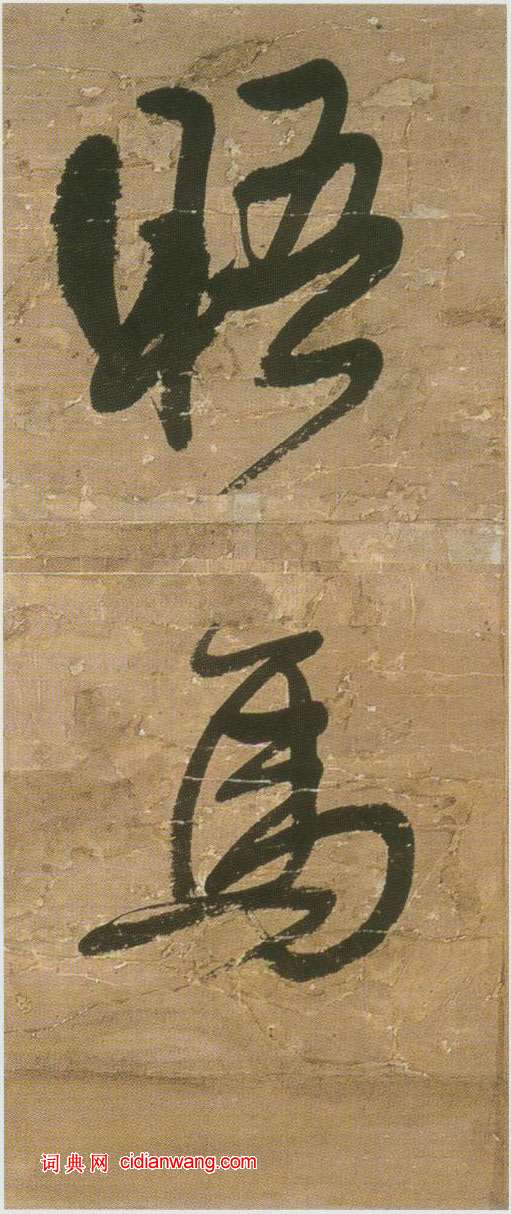 晤
焉
词典网 cidianwang.com